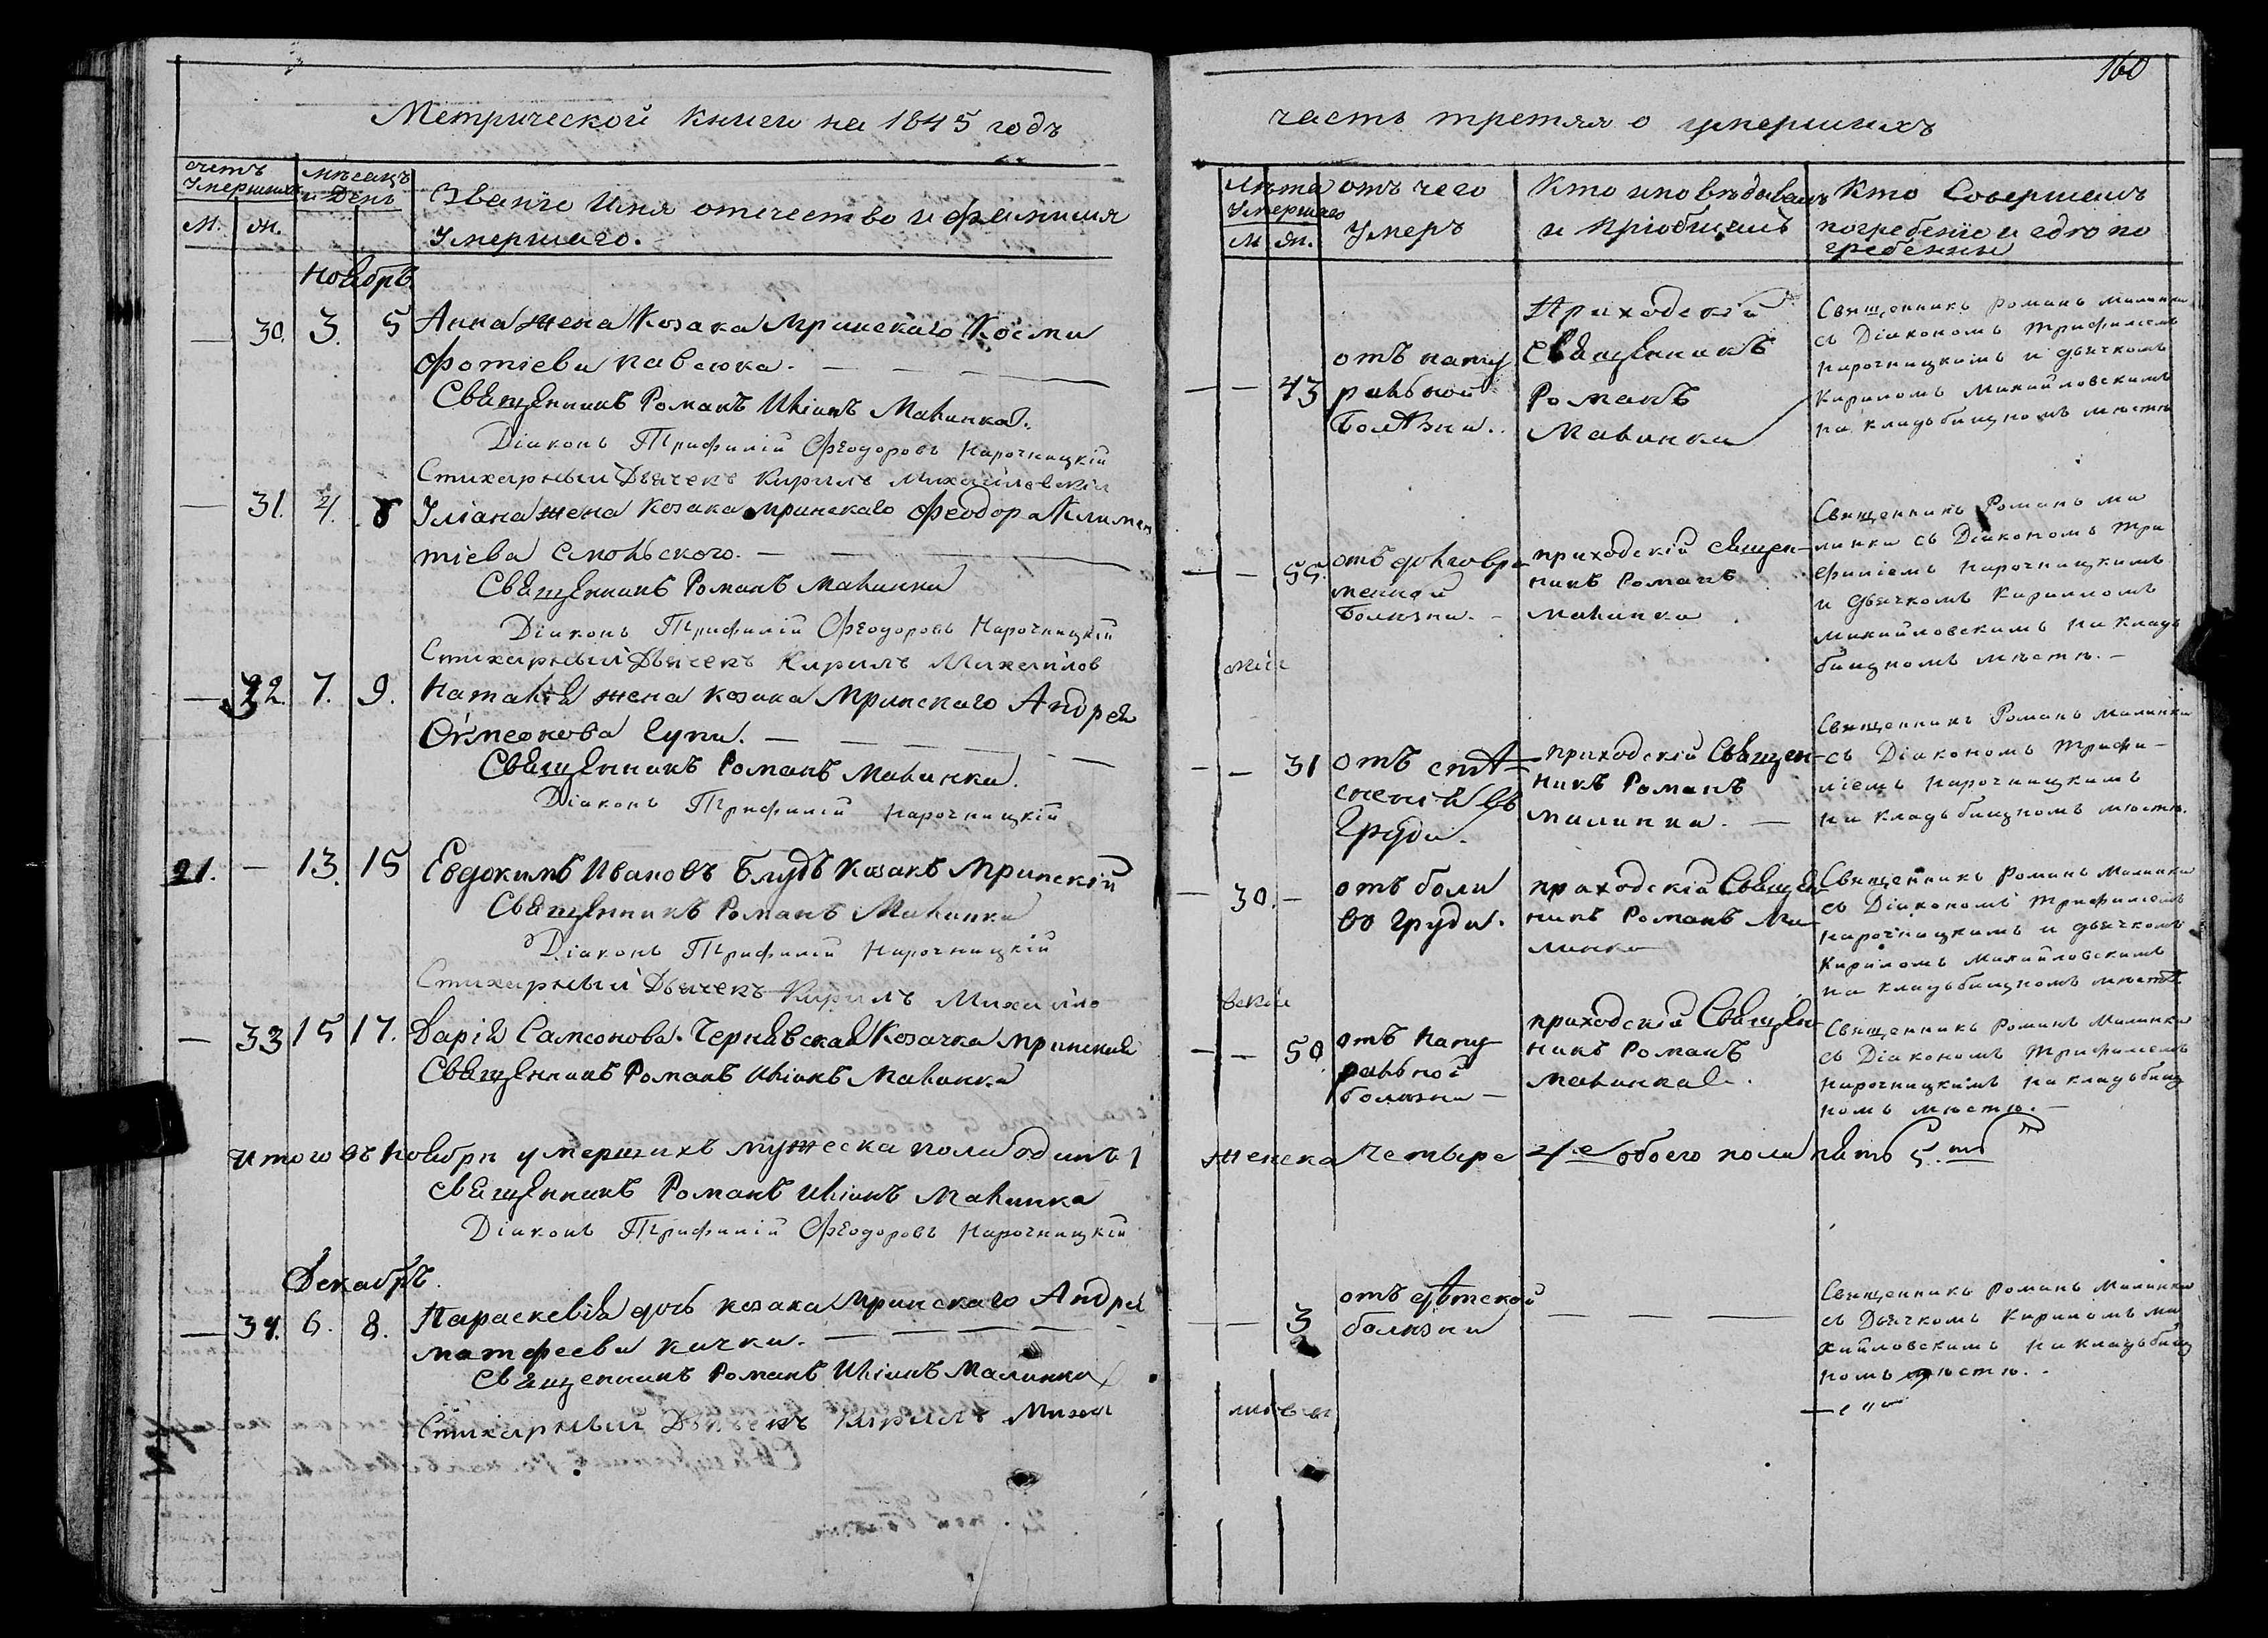 160
Метрической книги на 1845 годъ
часть третяя о умершихъ
счетъ умершихъ
М. Ж.
мѣсяцъ и День
Званіе Имя отечество и фамилия
Умершаго.
Лѣта Умершаго
М. Ж.
отъ чего
Умеръ
Кто исповѣдывалъ
и пріобщалъ
Кто Совершалъ
погребеніе и гдѣ по
гребенны
Ноябрь
— 30. 3. 5 Анна жена Козака Мринскаго Косми
Фотіева Павлюка.
Священникъ Романъ Иліинъ Малинка.
Діаконъ Трифилій Феодоровъ Нарочницкій
Стихарный Дьячекъ Кирилъ Михайловскій
— — 43
отъ нату
ральной
Болѣзни.
Приходскій
Священникъ
Романъ
Малинка
Священникъ Романъ Малинка
съ Діакономъ Трифиліемъ
Нарочницкимъ и дьячкомъ
Кириломъ Михайловскимъ
на кладьбищномъ мѣстѣ
— 31. 4. 8 Уліана жена козака Мринскаго Феодора Климен
тіева Смольского.
Священникъ Романъ Малинка
Діаконъ Трифилій Феодоровъ Нарочницкій
Стихарный Дьячекъ Кирилъ Михайлов
скій
— — 55.
отъ долговре
менной
Болѣзни. -
приходскій священ-
никъ Романъ
Малинка
Священникъ Романъ Ма
линка съ Діакономъ Три
филіемъ Нарочницкимъ
и Дьячкомъ Кириломъ
Михайловскимъ на кладь
бищномъ мѣстѣ. -
— 32. 7. 9. Наталія жена козака Мринскаго Андрея
Священникъ Романъ Малинка.
Діаконъ Трифилій Нарочницкій
- — 31
отъ стѣ-
сненія въ
Груди.
приходскій Священ-
никъ Романъ
Малинка. —
Священникъ Романъ Малинка
съ Діакономъ Трифи-
ліемъ Нарочницкимъ
на кладьбищномъ мѣстѣ.
21. — 13. 15 Евдокимъ Ивановъ Блудъ козакъ Мринскій
Священникъ Романъ Малинка
Діаконъ Трифилій Нарочницкій
Стихарный Дьячекъ Кирилъ Михайло
вскій
— 30. —
отъ боли
во груди.
приходскій Священ
никъ Романъ Ма
линка
Священникъ Романъ Малинка
съ Діакономъ Трифиліемъ
Нарочницкимъ и дьячкомъ
Кириломъ Михайловскимъ
на кладьбищномъ мѣстѣ
— 33 15 17. Дарія Самсонова Чернявская Козачка Мринская
Священникъ Романъ Иліинъ Малинка
— — 50.
отъ нату
ральной
болѣзни —
приходскій Священ
никъ Романъ
Малинка.
Священникъ Романъ Малинка
съ Діакономъ Трифиліемъ
Нарочницкимъ на кладьбищ
номъ мѣстѣ. —
Итого въ Ноябри умершихъ мужеска пола одинъ 1 женска четыре 4е обоего пола пять 5.ть
Священникъ Романъ Иліинъ Малинка
Діаконъ Трифилій Феодоровъ Нарочницкій
Декабрь.
— 34. 6. 8. Параскевія дочь козака Мринскаго Андрея
Матфеева Качки.
Священникъ Романъ Иліинъ Малинка
Стихарный Дьячекъ Кирилъ Михай
— — 3
отъ дѣтской
болѣзни
— — —
Священникъ Романъ Малинка
съ Дьячкомъ Кириломъ Ми
хайловскимъ на кладьбищ
номъ мѣстѣ.